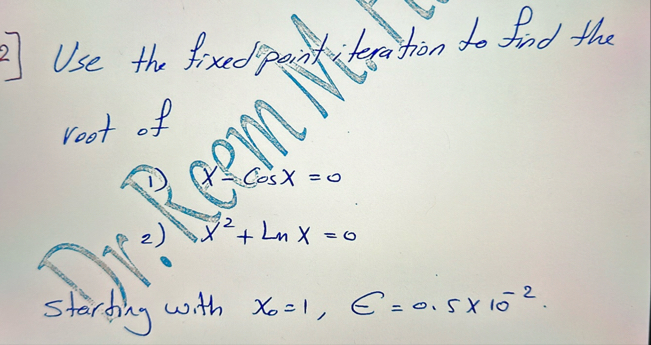 2] Use the fixed point iteration to find the
root of
1) X - Cos X = 0
2) X² + Ln X = 0
Starting with X₀ = 1, ϵ = 0.5 X 10⁻².
Dr. Reem M.